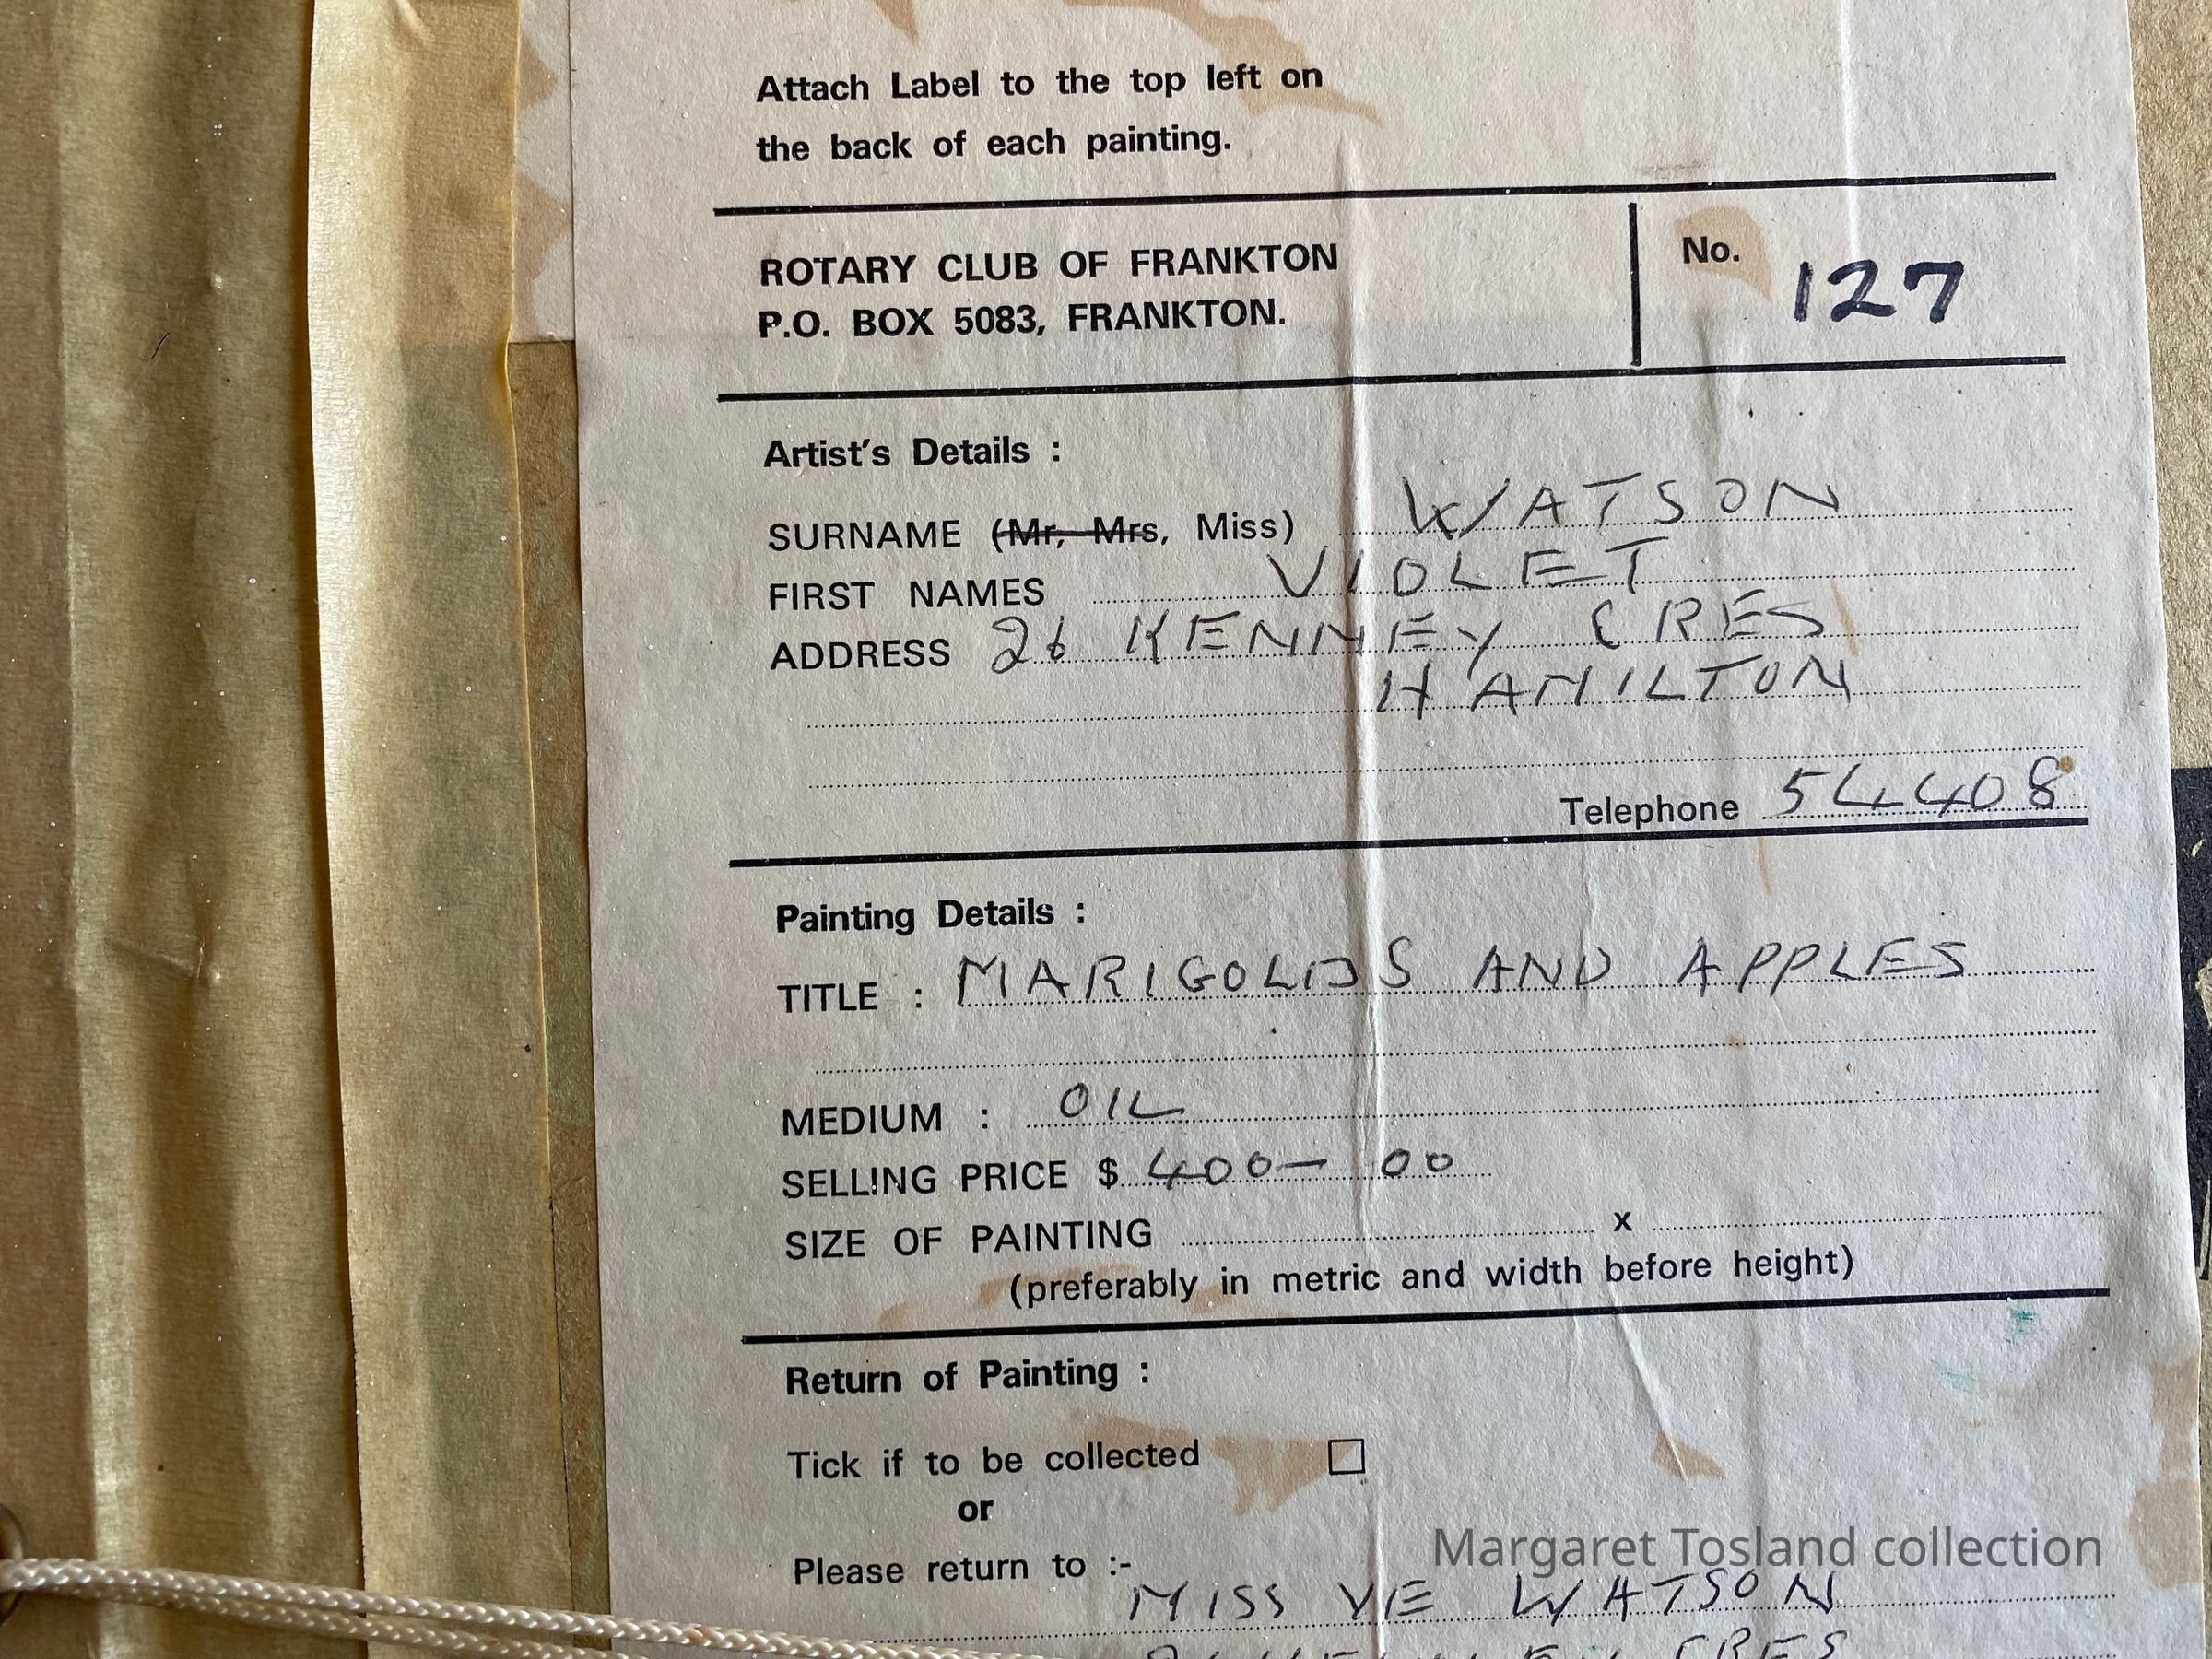 Attach Label to the top left on
the back of each painting.
ROTARY CLUB OF FRANKTON
P.O. BOX 5083, FRANKTON.
No. 127
Artist's Details :
SURNAME (Mr, Mrs, Miss) WATSON
FIRST NAMES VIOLET
ADDRESS 26 KENNEY CRES
HAMILTON
Telephone 54408
Painting Details :
TITLE : MARIGOLDS AND APPLES
MEDIUM : OIL
SELLING PRICE $ 400—00
SIZE OF PAINTING x
(preferably in metric and width before height)
Return of Painting :
Tick if to be collected
or
Margaret Tosland collection
Please return to :-
MISS VE WATSON
CRES